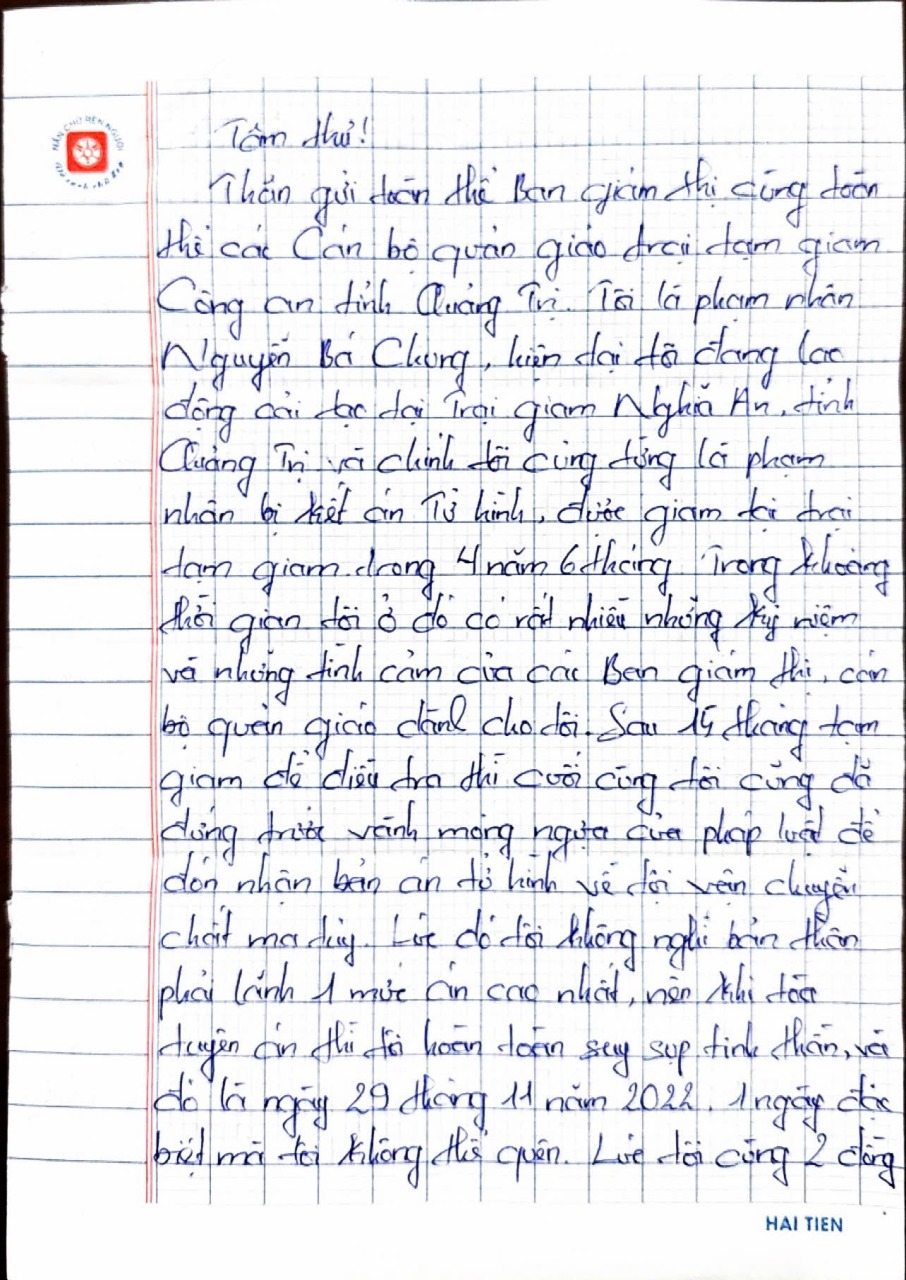 NÂNG CHỮ RÈN NGƯỜI
Tâm thư!
Thân gửi toàn thể Ban giám thị cùng toàn
thể các Cán bộ quản giáo trại tạm giam
Công an tỉnh Quảng Trị. Tôi là phạm nhân
Nguyễn Bá Chung, hiện tại tôi đang lao
động cải tạo tại Trại giam Nghĩa An, tỉnh
Quảng Trị và chính tôi cũng từng là phạm
nhân bị kết án Tử hình, được giam tại trại
tạm giam trong 4 năm 6 tháng. Trong khoảng
thời gian tôi ở đó có rất nhiều những kỷ niệm
và những tình cảm của các Ban giám thị, cán
bộ quản giáo dành cho tôi. Sau 15 tháng tạm
giam để điều tra thì cuối cùng tôi cũng đã
đứng trước vành móng ngựa của pháp luật để
đón nhận bản án tử hình về tội vận chuyển
chất ma túy. Lúc đó tôi không nghĩ bản thân
phải lãnh 1 mức án cao nhất, nên khi tòa
tuyên án thì tôi hoàn toàn suy sụp tinh thần, và
đó là ngày 29 tháng 11 năm 2022. 1 ngày đặc
biệt mà tôi không thể quên. Lúc tôi cùng 2 đồng
HAI TIEN